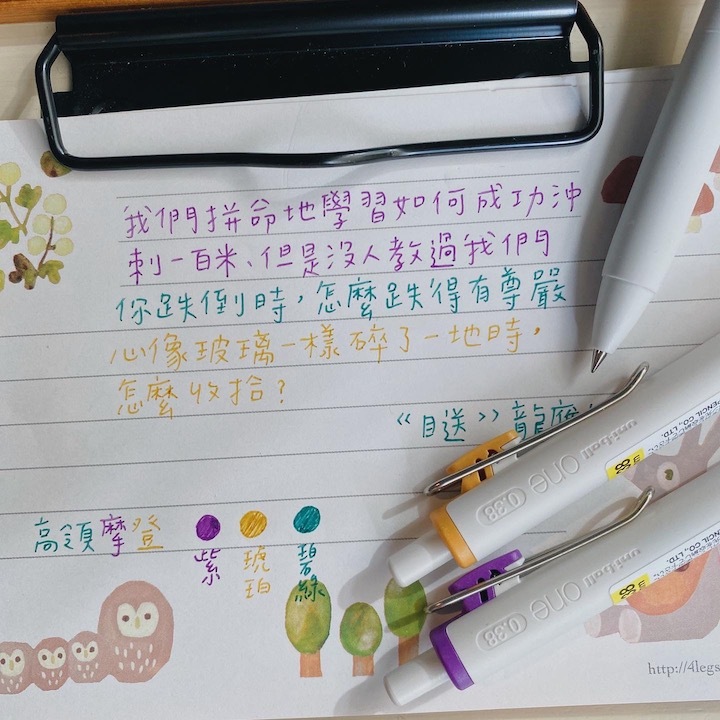 我們拼命地學習如何成功沖
刺一百米、但是沒人教過我們
你跌倒時，怎麼跌得有尊嚴
心像玻璃一樣碎了一地時，
怎麼收拾？
《目送》龍應
高領摩登
紫
琥珀
碧綠
uni-ball one 0.38
PENCIL CO., LTD.
uni-ball one 0.38
PENCIL CO., LTD.
http://4legs